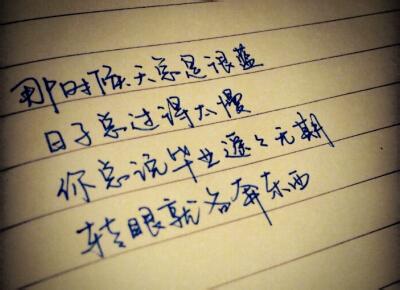 那时候天总是很蓝
日子总过得太慢
你总说毕业遥々无期
转眼就各奔东西